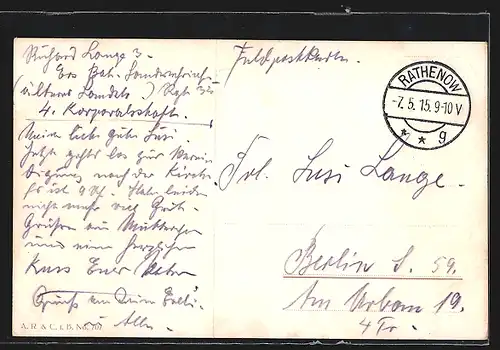 Richard Lange 3.
Ers. Bat. Landwehr
4. Korporalschaft.
Meine liebe gute Susi
Jetzt gehts los zur Verei-
digung nach der Kirche
Es ist 9 Uhr. Habe leider
nicht mehr viel Zeit.
Grüße an Mutterchen
und einen herzlichen
Kuss Euer Vater
Gruss an
Alle.
A. R. & C. i. B. No. 707
Feldpostkarte.
RATHENOW
-7.5.15.9-10V
* * g
Frl. Susi Lange.
Berlin S. 59.
Am Urban 19.
4 Tr.